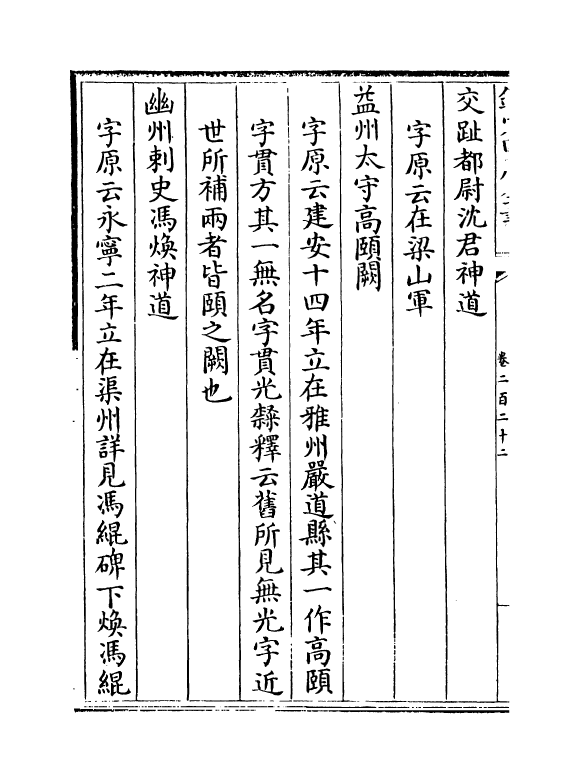 交趾都尉沈君神道
字原云在梁山軍
益州太守高頤闕
字原云建安十四年立在雅州嚴道縣其一作高頤
字貫方其一無名字貫光隸釋云舊所見無光字近
世所補兩者皆頤之闕也
幽州刺史馮煥神道
字原云永寧二年立在渠州詳見馮緄碑下煥馮緄
卷二百二十二